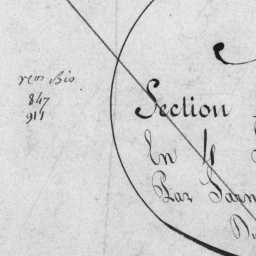 n.os Bis
847
911
Section
En 4
Par